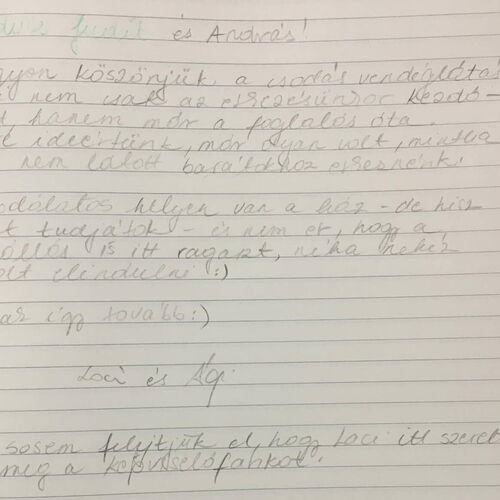 Judit és András!
köszönjük a csodás vendéglátás
nem csak az érkezésünkor kezdő-
hanem már a foglalás óta.
ideértünk, már olyan volt, mintha
nem látott barátokhoz érkeznénk.
helyen van a ház - de hisz
tudjátok - és nem ér, hogy a
is itt ragadt, néha nehéz
elindulni :)
így tovább :)
Loci és Ági
sosem felejtjük el, hogy Loci itt szeret
meg a képviselőfánkot.